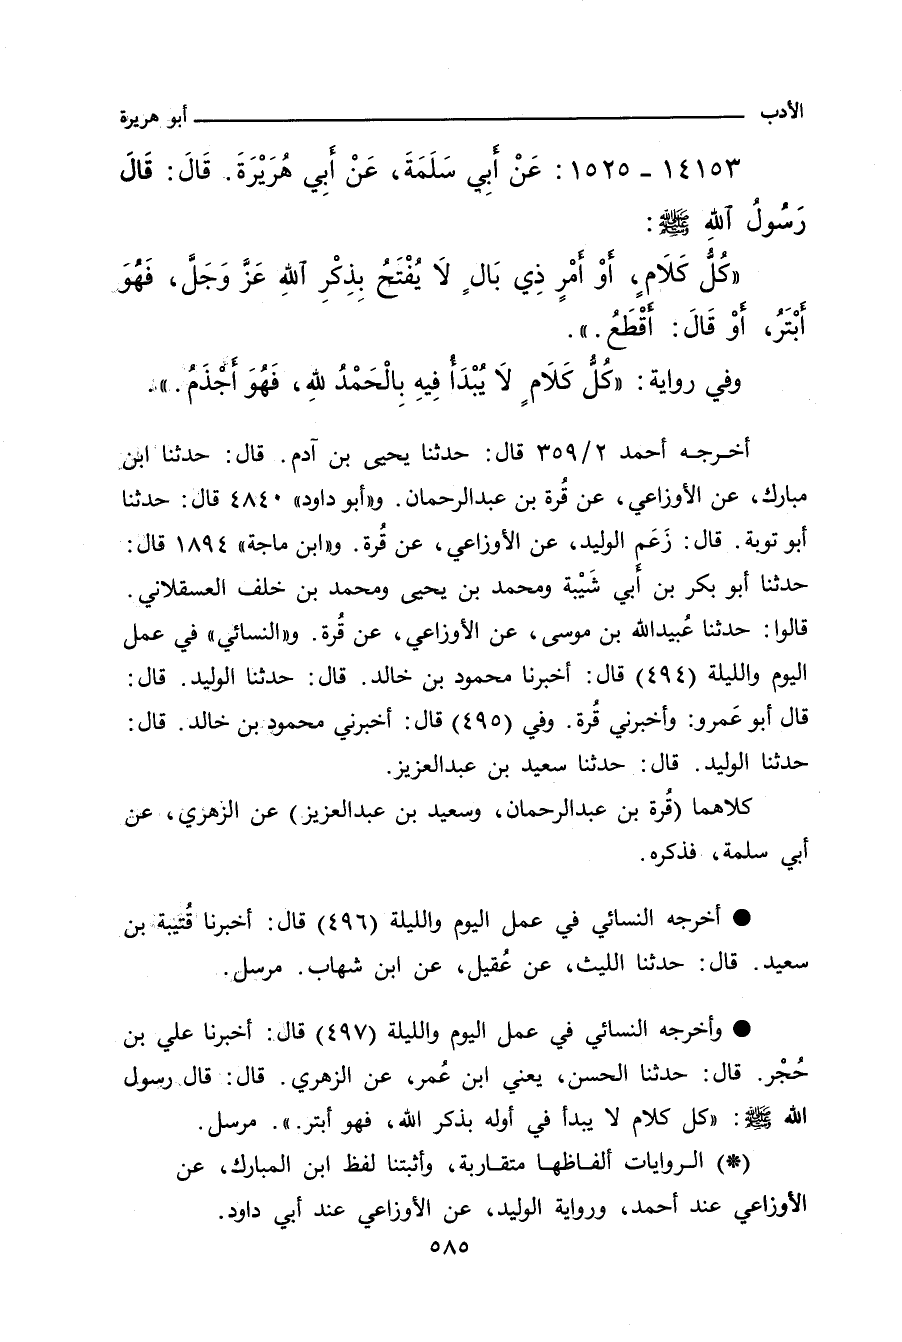 الأدب ــــــــــــــــــــــــــــــــــــــــ أبو هريرة
١٤١٥٣ - ١٥٢٥ : عَنْ أَبِي سَلَمَةَ، عَنْ أَبِي هُرَيْرَةَ. قَالَ: قَالَ
رَسُولُ اللهِ ﷺ:
«كُلُّ كَلَامٍ، أَوْ أَمْرٍ ذِي بَالٍ لَا يُفْتَحُ بِذِكْرِ اللهِ عَزَّ وَجَلَّ، فَهُوَ
أَبْتَرُ، أَوْ قَالَ: أَقْطَعُ.».
وفي رواية: «كُلُّ كَلَامٍ لَا يُبْدَأُ فِيهِ بِالْحَمْدُ للهِ، فَهُوَ أَجْذَمُ.».
أخرجه أحمد ٣٥٩/٢ قال: حدثنا يحيى بن آدم. قال: حدثنا ابن
مبارك، عن الأوزاعي، عن قُرة بن عبدالرحمان. و«أبو داود» ٤٨٤٠ قال: حدثنا
أبو توبة. قال: زَعَم الوليد، عن الأوزاعي، عن قُرة. و«ابن ماجة» ١٨٩٤ قال:
حدثنا أبو بكر بن أَبي شَيْبة ومحمد بن يحيى ومحمد بن خلف العسقلاني.
قالوا: حدثنا عُبيدالله بن موسى، عن الأوزاعي، عن قُرة. و«النسائي» في عمل
اليوم والليلة (٤٩٤) قال: أخبرنا محمود بن خالد. قال: حدثنا الوليد. قال:
قال أبو عَمرو: وأخبرني قُرة. وفي (٤٩٥) قال: أخبرني محمود بن خالد. قال:
حدثنا الوليد. قال: حدثنا سعيد بن عبدالعزيز.
كلاهما (قُرة بن عبدالرحمان، وسعيد بن عبدالعزيز) عن الزهري، عن
أبي سلمة، فذكره.
● أخرجه النسائي في عمل اليوم والليلة (٤٩٦) قال: أخبرنا قُتيبة بن
سعيد. قال: حدثنا الليث، عن عُقيل، عن ابن شهاب. مرسل.
● وأخرجه النسائي في عمل اليوم والليلة (٤٩٧) قال: أخبرنا علي بن
حُجْر. قال: حدثنا الحسن، يعني ابن عُمر، عن الزهري. قال: قال رسول
الله ﷺ: «كل كلام لا يبدأ في أوله بذكر الله، فهو أبتر.». مرسل.
(*) الروايات ألفاظها متقاربة، وأثبتنا لفظ ابن المبارك، عن
الأوزاعي عند أحمد، ورواية الوليد، عن الأوزاعي عند أبي داود.
٥٨٥